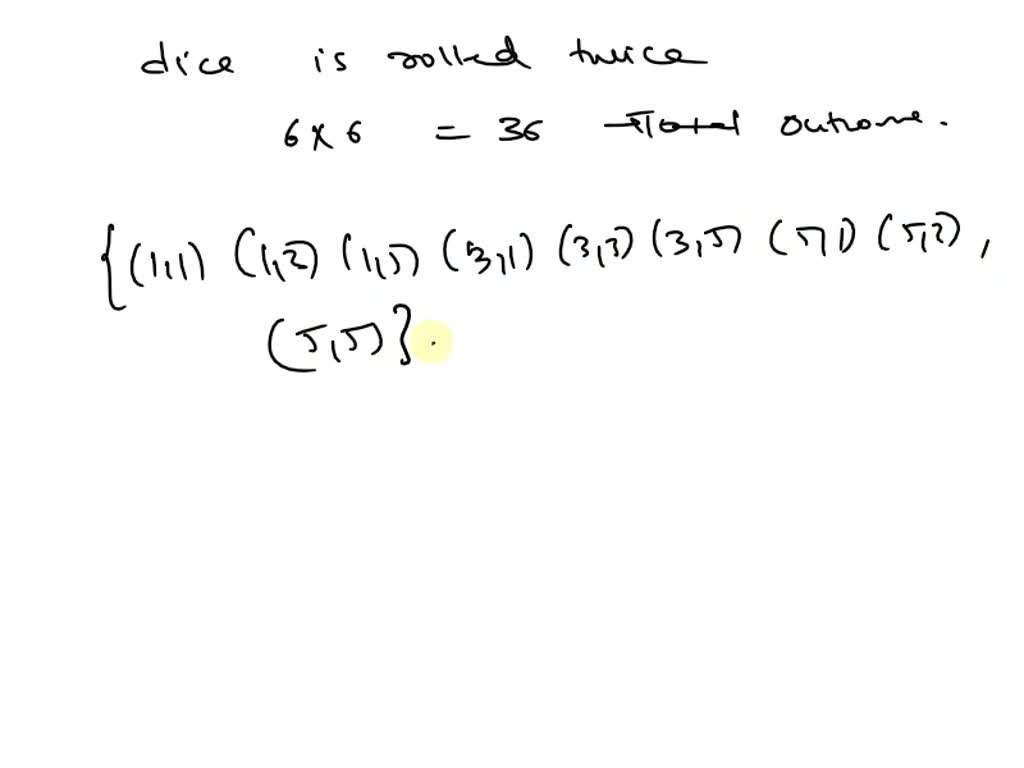 dice is rolled twice
6 x 6 = 36 Total outcome.
{(1,1) (1,3) (1,5) (3,1) (3,3) (3,5) (5,1) (5,3),
(5,5)}.